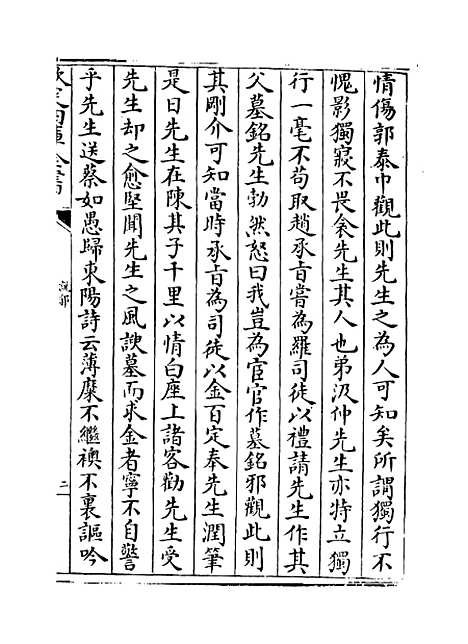 情傷郭泰巾觀此則先生之為人可知矣所謂獨行不
愧影獨寢不畏衾先生其人也弟汲仲先生亦特立獨
行一毫不苟取趙承㫖嘗為羅司徒以禮請先生作其
父墓銘先生勃然怒曰我豈為宦官作墓銘邪觀此則
其剛介可知當時承㫖為司徒以金百定奉先生潤筆
是日先生在陳其子千里以情白座上諸客勸先生受
先生却之愈堅聞先生之風諛墓而求金者寧不自警
乎先生送蔡如愚歸東陽詩云薄糜不繼襖不裏謳吟
欽定四庫全書
說郛
二